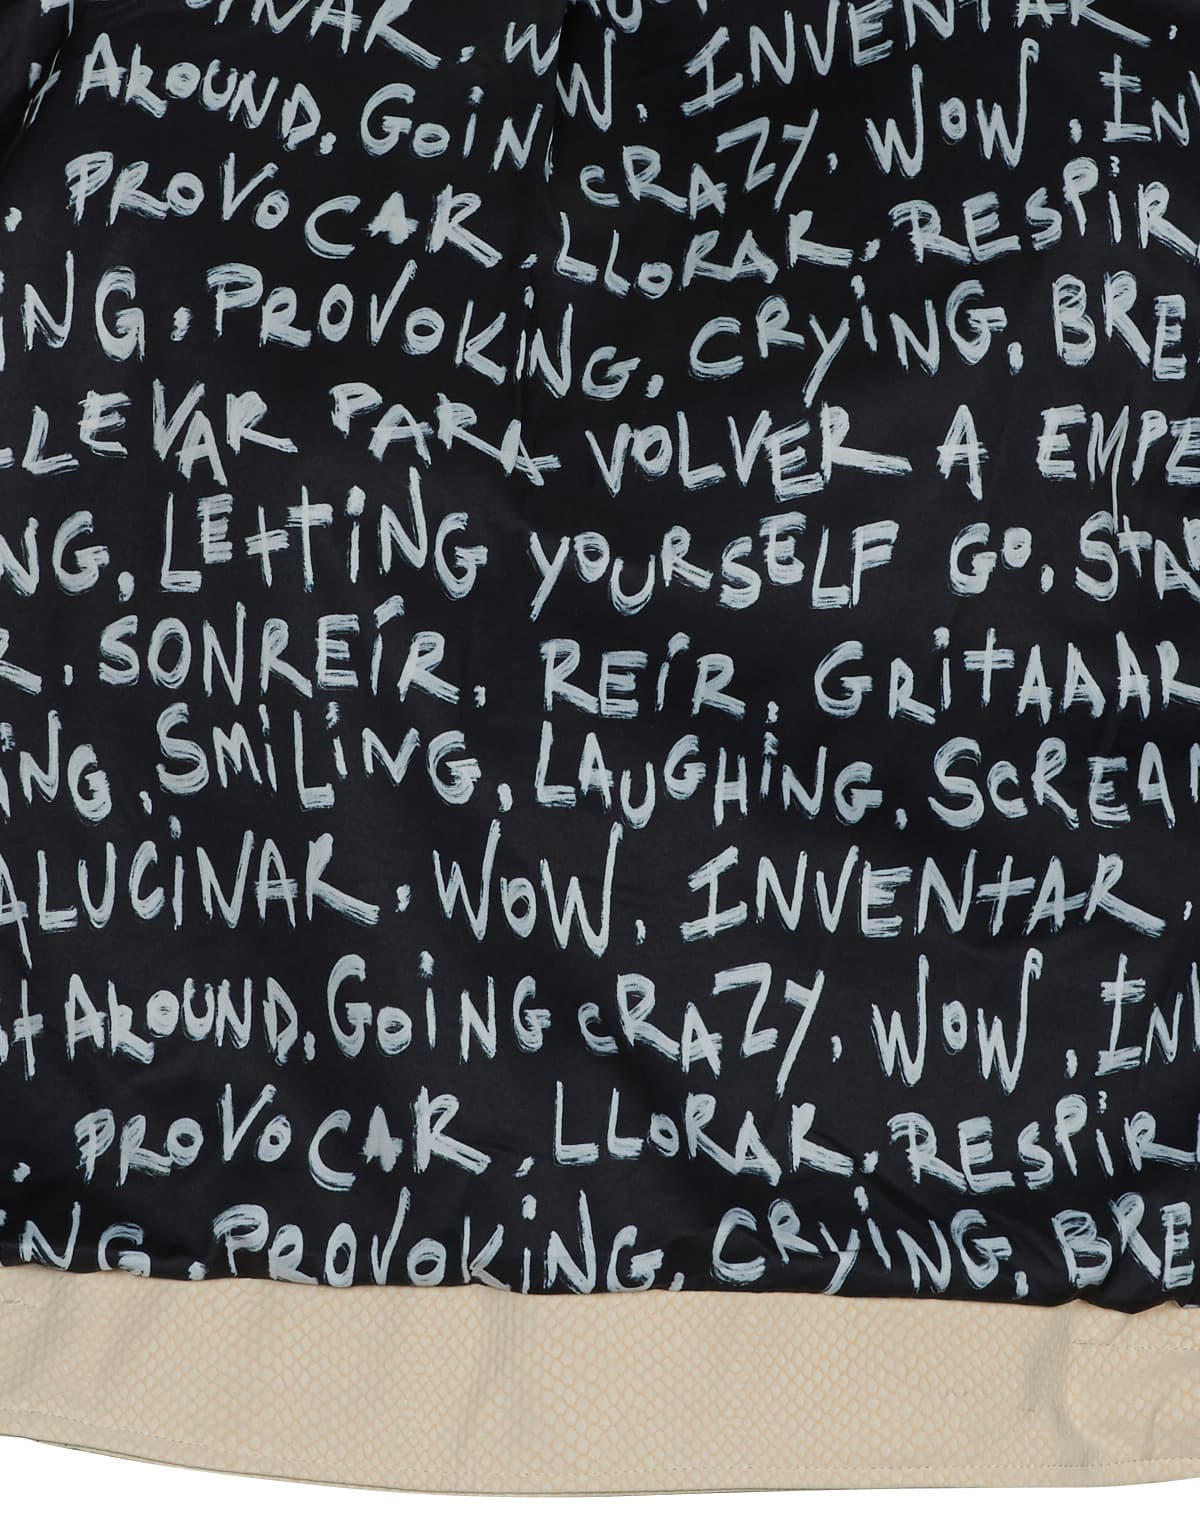 WOW, INVENTAR,
AROUND, GOING CRAZY, WOW, IN
, PROVOCAR, LLORAR, RESPIR
ING, PROVOKING, CRYING, BRE
LLEVAR PARA VOLVER A EMPE
NG, LETTING YOURSELF GO, STA
R, SONREÍR, REÍR, GRITAAAR
ING, SMILING, LAUGHING, SCREA
ALUCINAR, WOW, INVENTAR,
AROUND, GOING CRAZY, WOW, IN
, PROVOCAR, LLORAR, RESPIR
NG, PROVOKING, CRYING, BRE